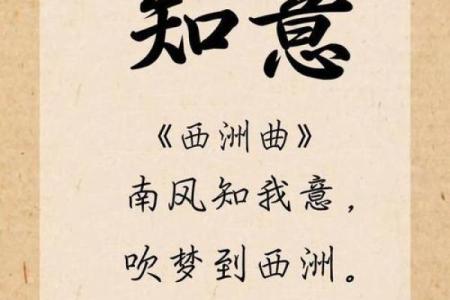 知意
《西洲曲》
南风知我意，
吹梦到西洲。